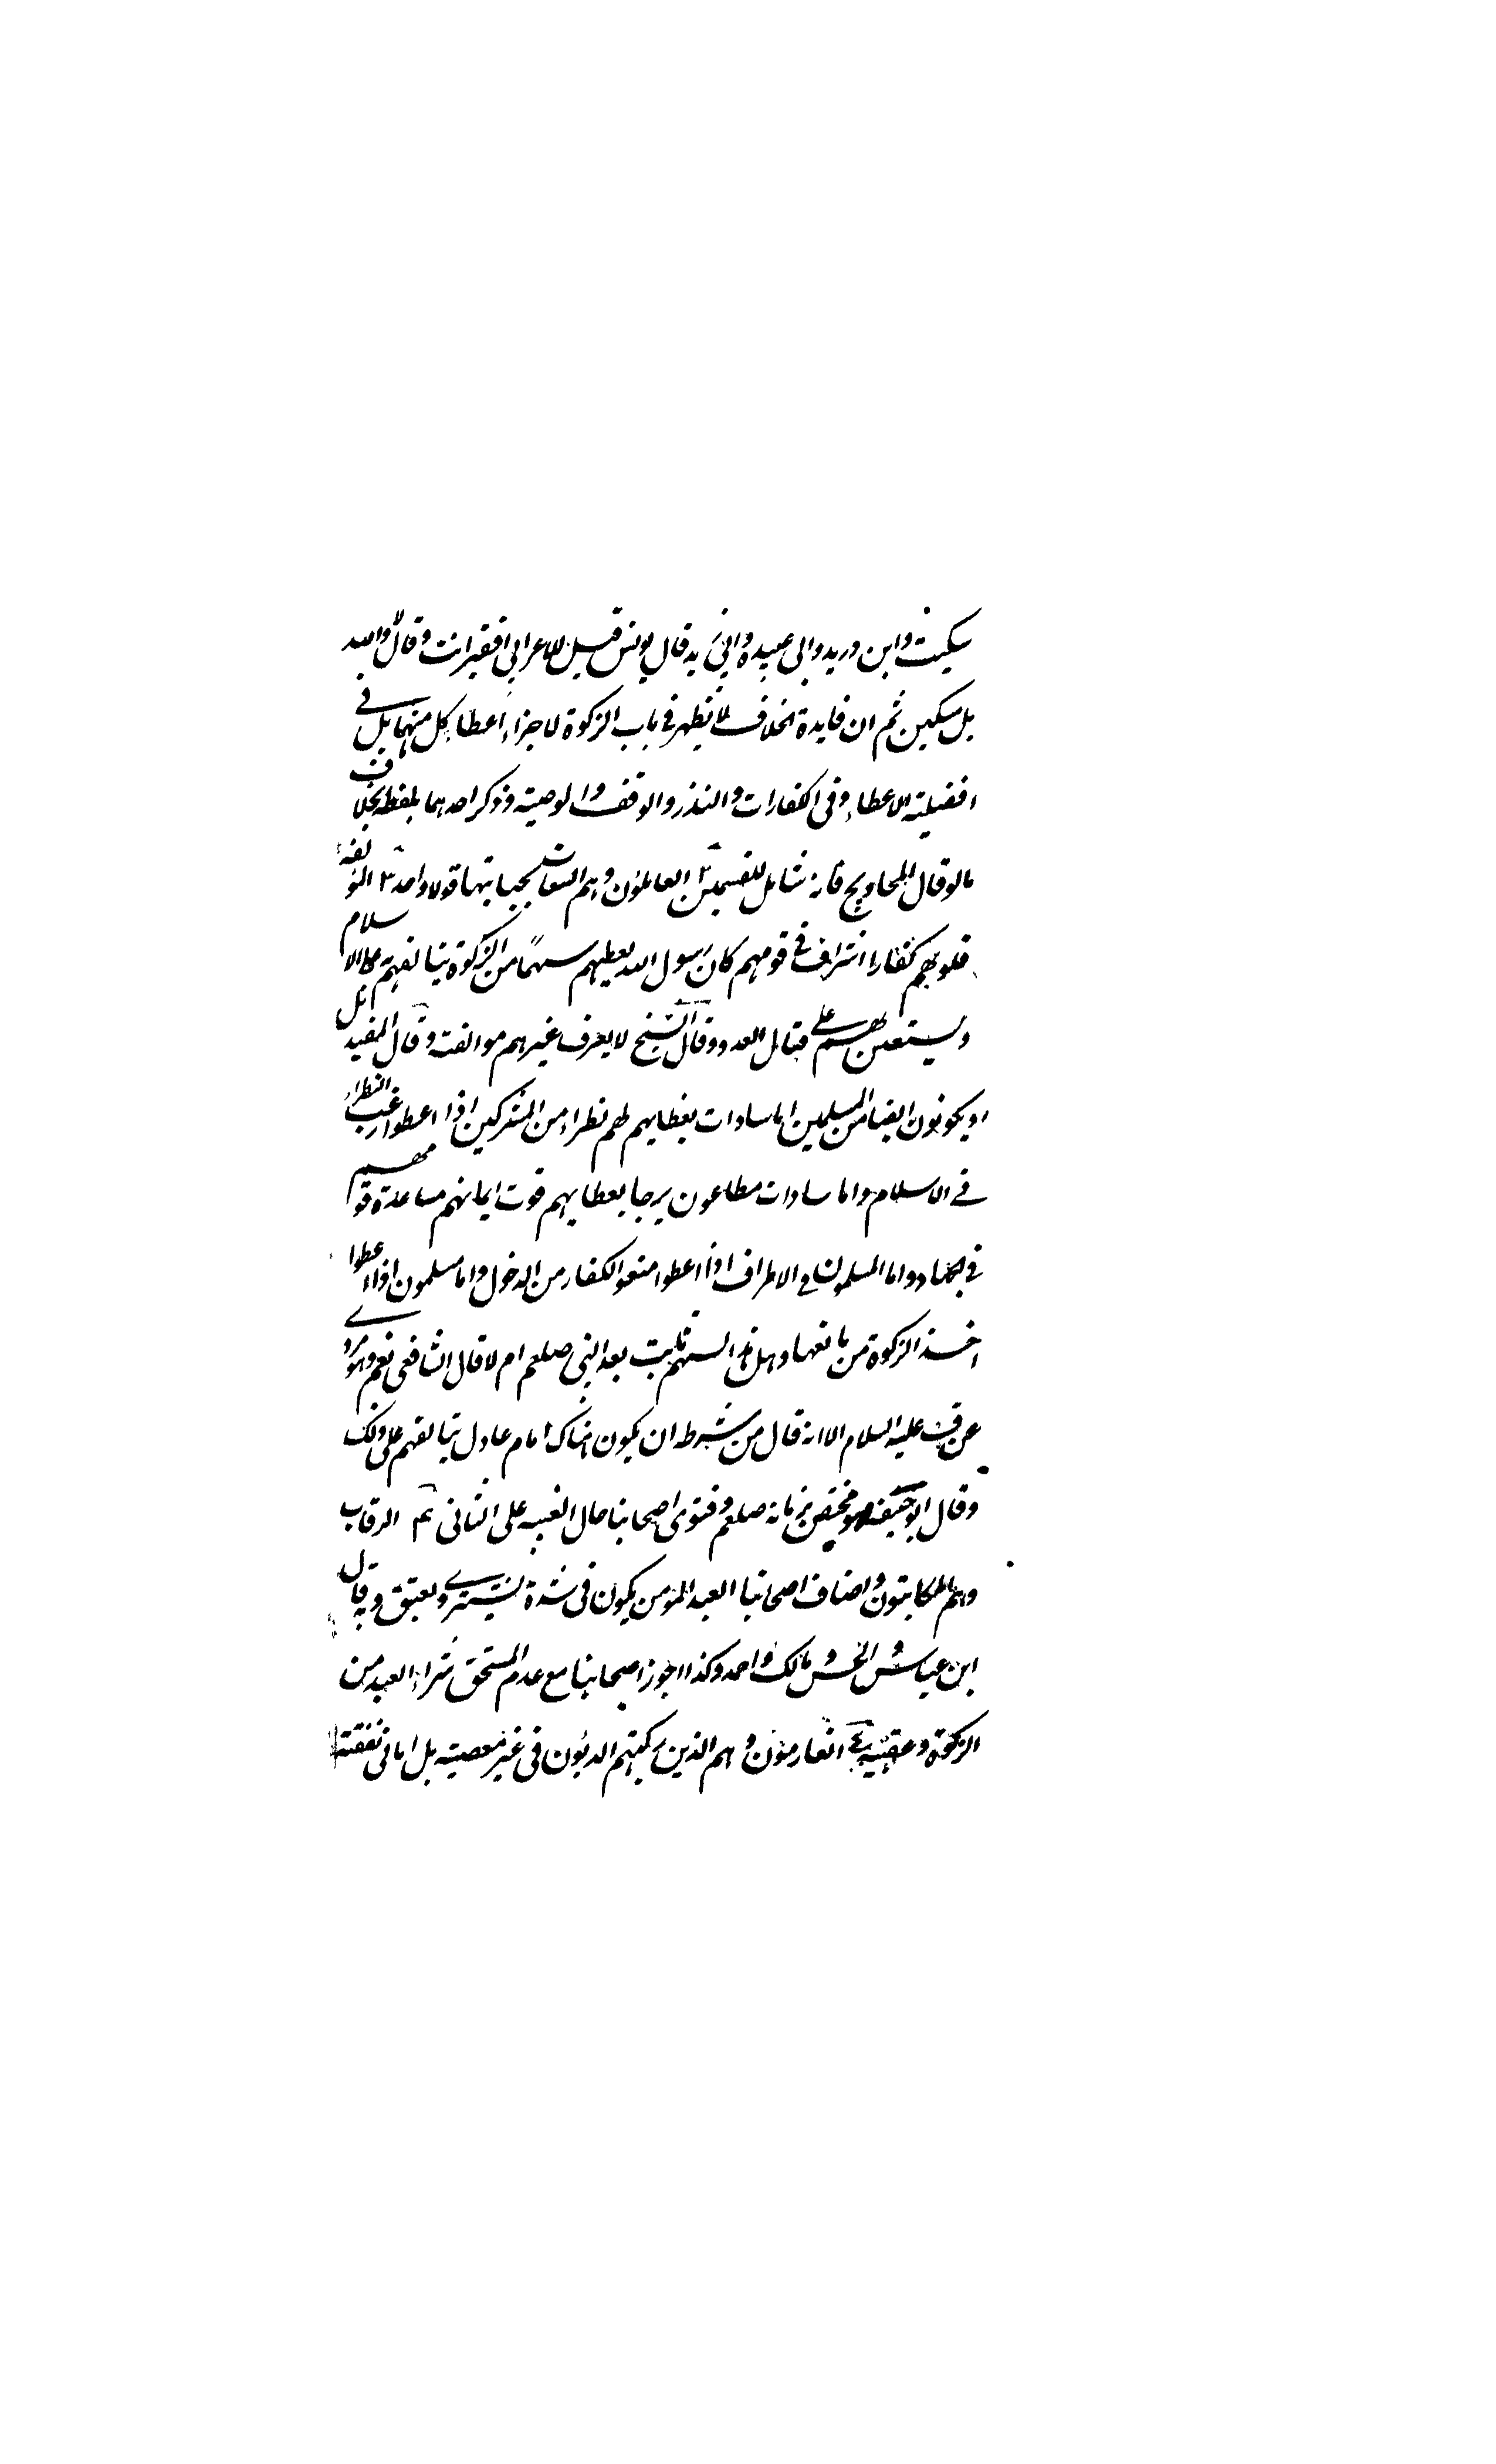 سكيت وابن دريد وابى عبيدة وابى زيد قال يونس قيل للاعرابى افقير انت وقال لا والله
بل مسكين ثم ان فايدة الخلاف لا تظهر فى باب الزكوة لاجزاء اعطا كل منهما بل فى
افضلية الاعطاء وفى الكفارات والنذر والوقف والوصية وذكر احدهما بلفظه بخلاف
ما لو قال للمحاويج فانه شامل للقسمين ٢ العاملون وهم السعات لجبايتها قولا واحدا ٣ المولفة
قلوبهم كفارا اشراف فى قومهم كان رسول الله يعطيهم سهمًا من الزكوة يتالفهم على الاسلام
ويستعين بهم على قتال العدو وقال الشيخ لا يعرف غيرهم موالفة وقال المفيد بل
او يكونون ايضا من المسلمين اما سادات لهم نظراء من المشركين اذا اعطوا رغب النظراء
فى الاسلام واما سادات مطاعون يرجا بعطايهم قوت ايمانهم مساعدة قومهم
فى الجهاد واما المسلمون فى الاطراف اذا اعطوا منعوا الكفار من الدخول واما مسلمون اذا اعطوا
اخذ الزكوة من مانعها وهل هذا السهم ثابت بعد النبى صلعم ام لا قال الشافعى نعم وهو مروى
عن ق عليه السلام الا انه قال من شرطه ان يكون هناك امام عادل يتالفهم على ذلك
وقال ابو حنيفه هو مختص بزمانه صلعم وفتوى اصحابنا حال الغيبه على الثانى ٤ الرقاب
وهم المكاتبون واضاف اصحابنا العبد المؤمن يكون فى شدة يشترى ويعتق وبه قال
ابن عباس والحسن ومالك واحمد وكذا جوز اصحابنا مع عدم المستحق شراء العبد من
الزكوة وعتقه الغارمون وهم الذين ركبتهم الديون فى غير معصية بل اما فى نفقة